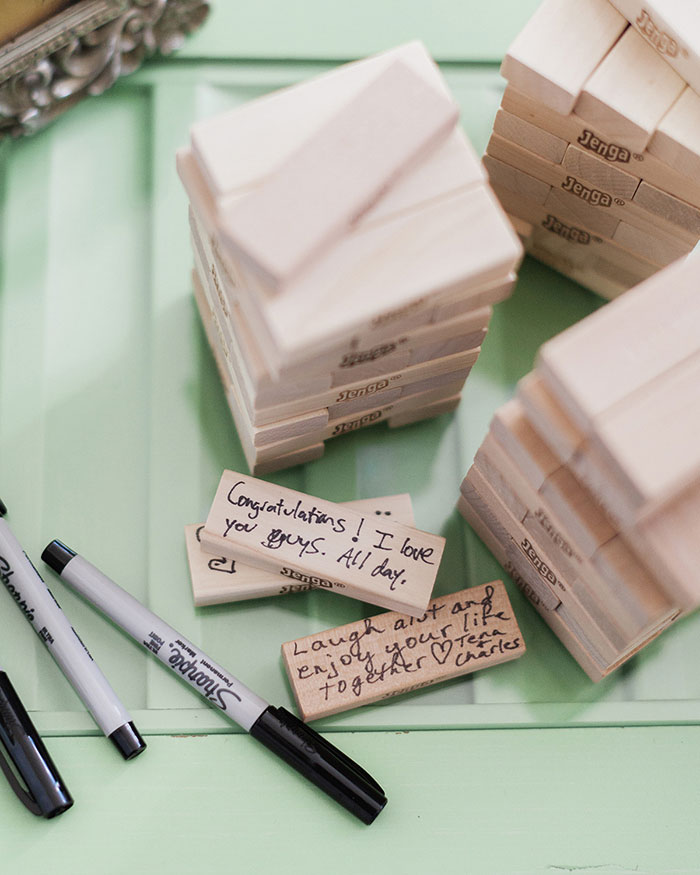 Jenga
Jenga
Jenga
Jenga
Jenga
Congratulations! I love
you guys. All day.
Jenga
Jenga
Laugh alot and
enjoy your life
together ♡ Tena
Charles
Sharpie
Sharpie
Permanent Marker